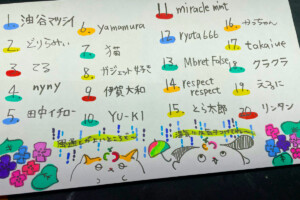 1 油谷マツシイ
2 どりちかい
3 てる
4 nyny
5 田中イチロー
6 yamamura
7 猫
8 ガジェット好き
9 伊賀大和
10 YU-KI
11 miracle mint
12 ryota666
13 Mbret False
14 respect respect
15 とら太郎
16 かっちゃん
17 takaiue
18 クラクラ
19 えるに
20 リンタン